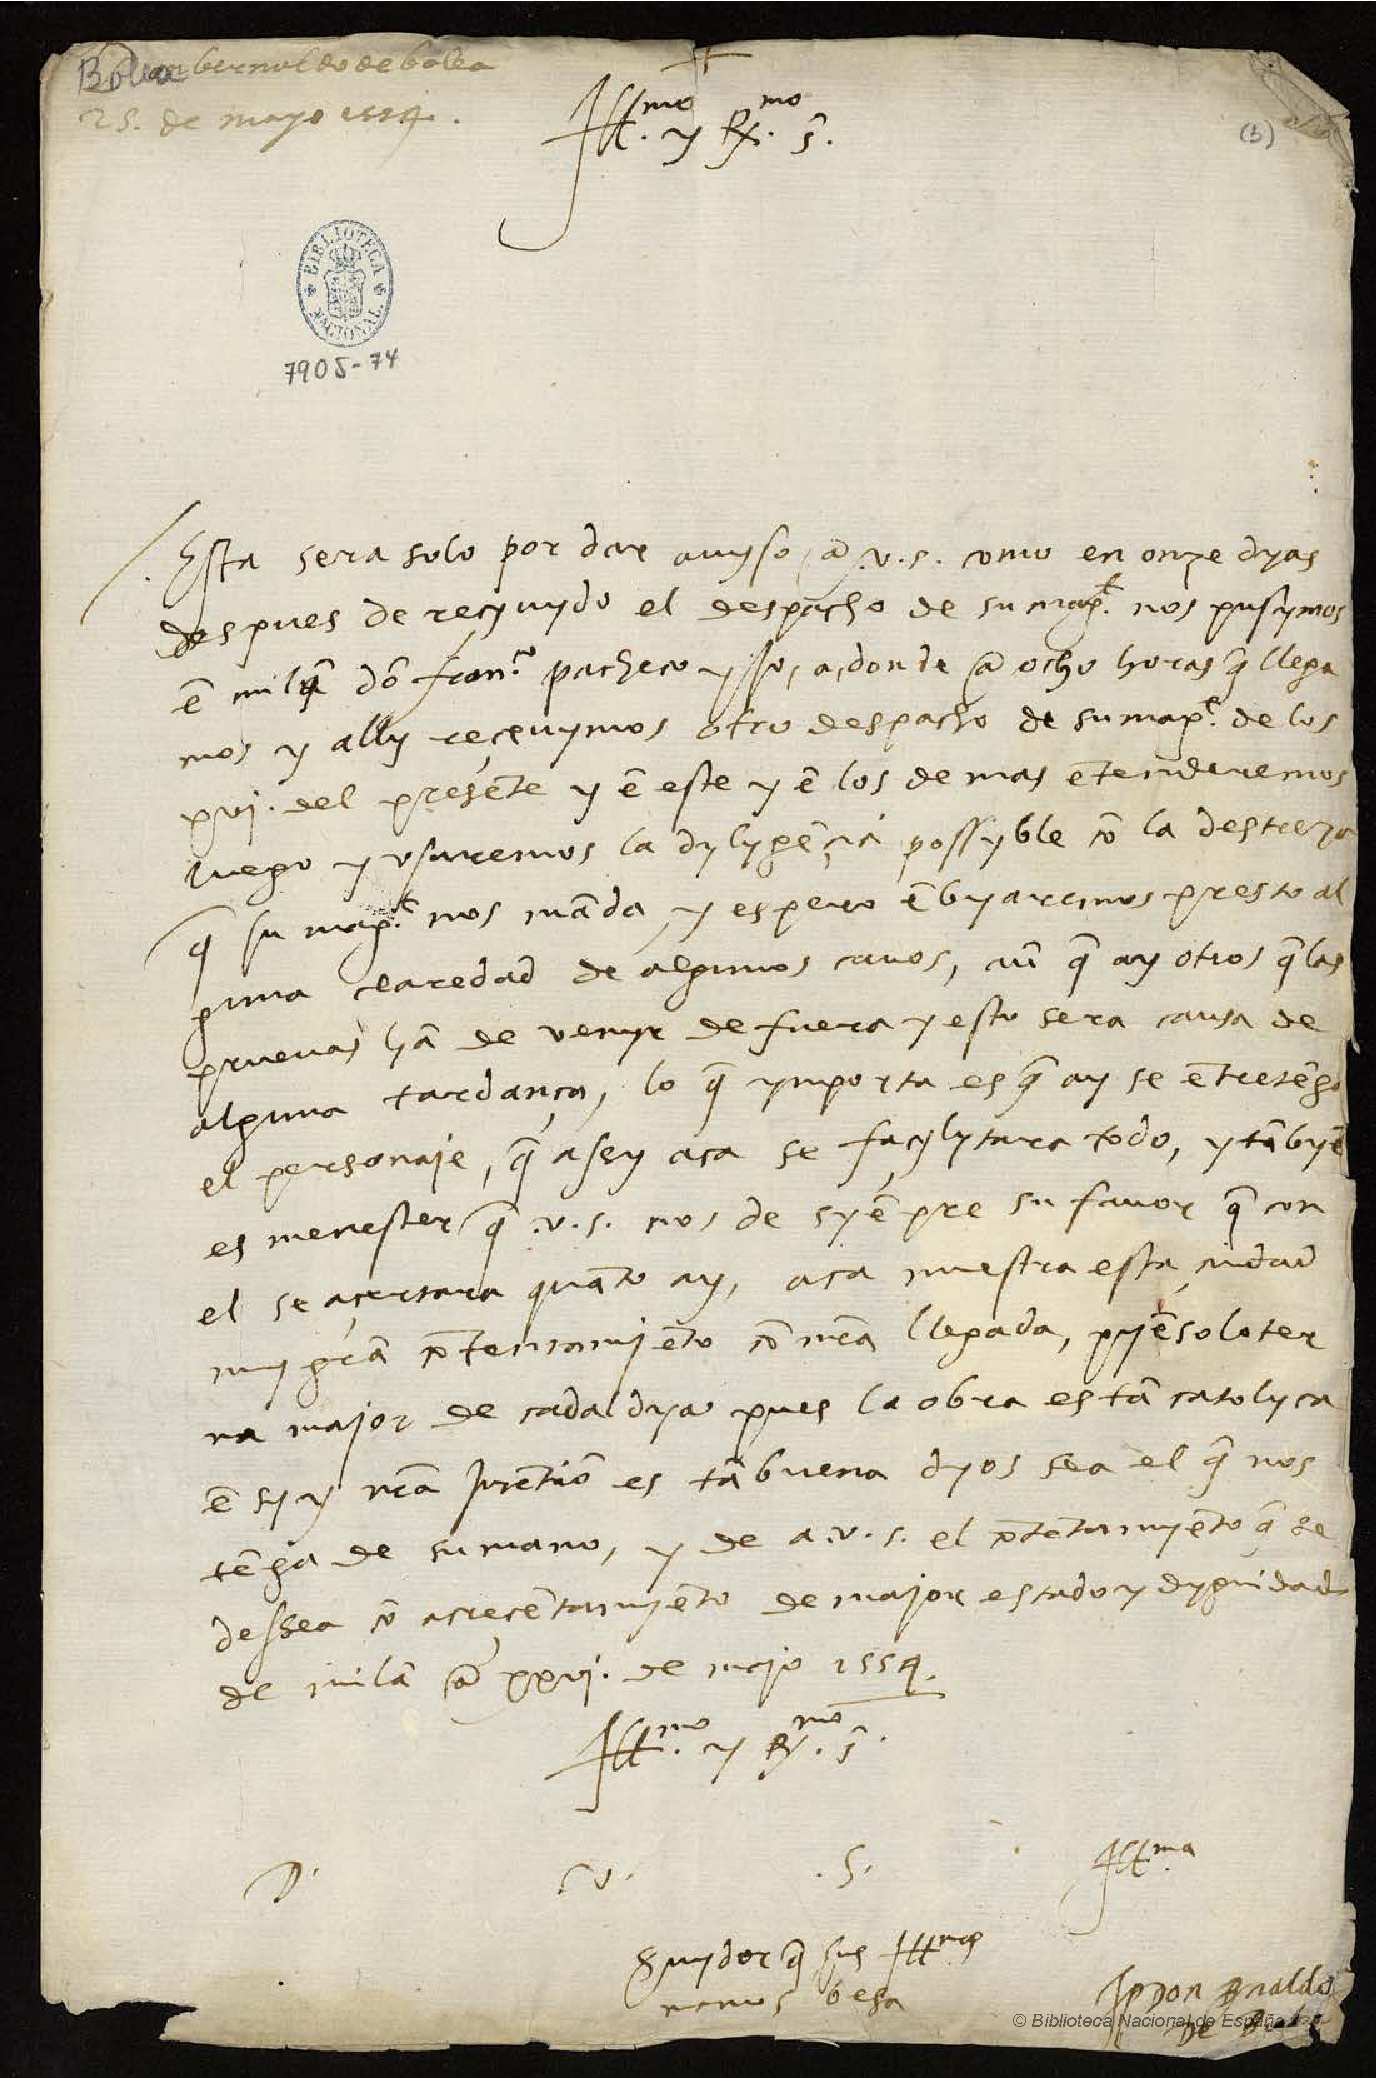 Bolea
bernaldo de bolea
25. de mayo 1554.
(3)
Ill.mo y Rx.mo s.
BIBLIOTECA NACIONAL
7905-74
Esta sera solo por dar auyso, a .v.s. como en onze dyas
despues de reçyuydo el despacho de su mag.t nos pusymos
ē milā dō fran.co pacheco y yo, a donde a ocho horas q̄ llega
mos y ally reçeuymos otro despacho de su mag.t de los
xvj. del presēte y ē este y ē los de mas ētenderemos
luego y vsaremos la dylygēçia possyble cō la destreza
q̄ su mag.t nos māda, y espero ēbyaremos presto al
guna claredad de algunos cauos, aū q̄ ay otros q̄ las
prueuas hā de venyr de fuera y esto sera causa de
alguna tardança, lo q̄ ymporta es q̄ ay se ētretēga
el personaje, q̄ asy aca se façylytara todo, y tābyē
es menester q̄ .v.s. nos de syēpre su fauor q̄ con
el se açertara quāto ay, aca muestra esta çiudad
muy grā cōtentamjēto cō nr̄a llegada, pyēso lo ter
na major de cada dya pues la obra es tā catolyca
ē sy y nr̄a jntētiō es tā buena dyos sea el q̄ nos
tēga de su mano, y de a .v.s. el cōtētamyēto q̄ se
dessea cō acreçētamyēto de major estado y dygnidad
de milā a xxvj. de majo 1554.
Ill.mo y Rx.mo s.
D. .V. .S. Ill.ma
Seruydor q̄ sus Ill.mas
manos besa
Don Bnaldo
De Bolea
© Biblioteca Nacional de España